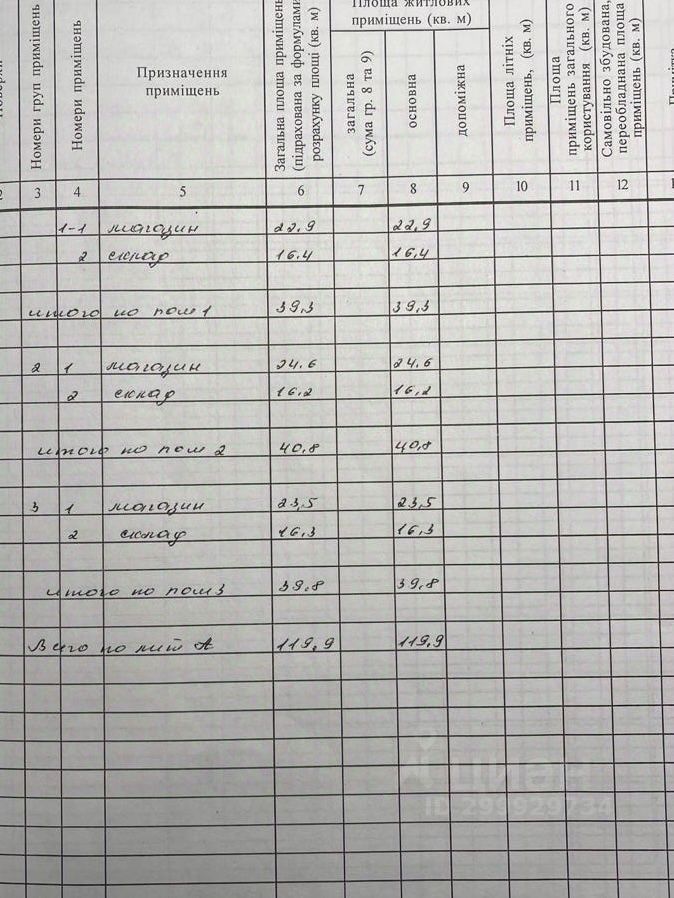 Площа житлових
приміщень (кв. м)
Номери груп приміщень
Номери приміщень
Призначення
приміщень
Загальна площа приміщень
(підрахована за формулами
розрахунку площі (кв. м)
загальна
(сума гр. 8 та 9)
основна
допоміжна
Площа літніх
приміщень, (кв. м)
Площа
приміщень загального
користування (кв. м)
Самовільно збудована,
переобладнана площа
приміщень (кв. м)
2 3 4 5 6 7 8 9 10 11 12
1-1 магазин 22.9 22,9
2 склад 16.4 16,4
итого по пом 1 39,3 39,3
2 1 магазин 24.6 24.6
2 склад 16.2 16,2
итого по пом 2 40,8 40,8
3 1 магазин 23,5 23,5
2 склад 16,3 16,3
итого по пом 3 39.8 39,8
Всего по лит А 119,9 119,9
ID 299929734